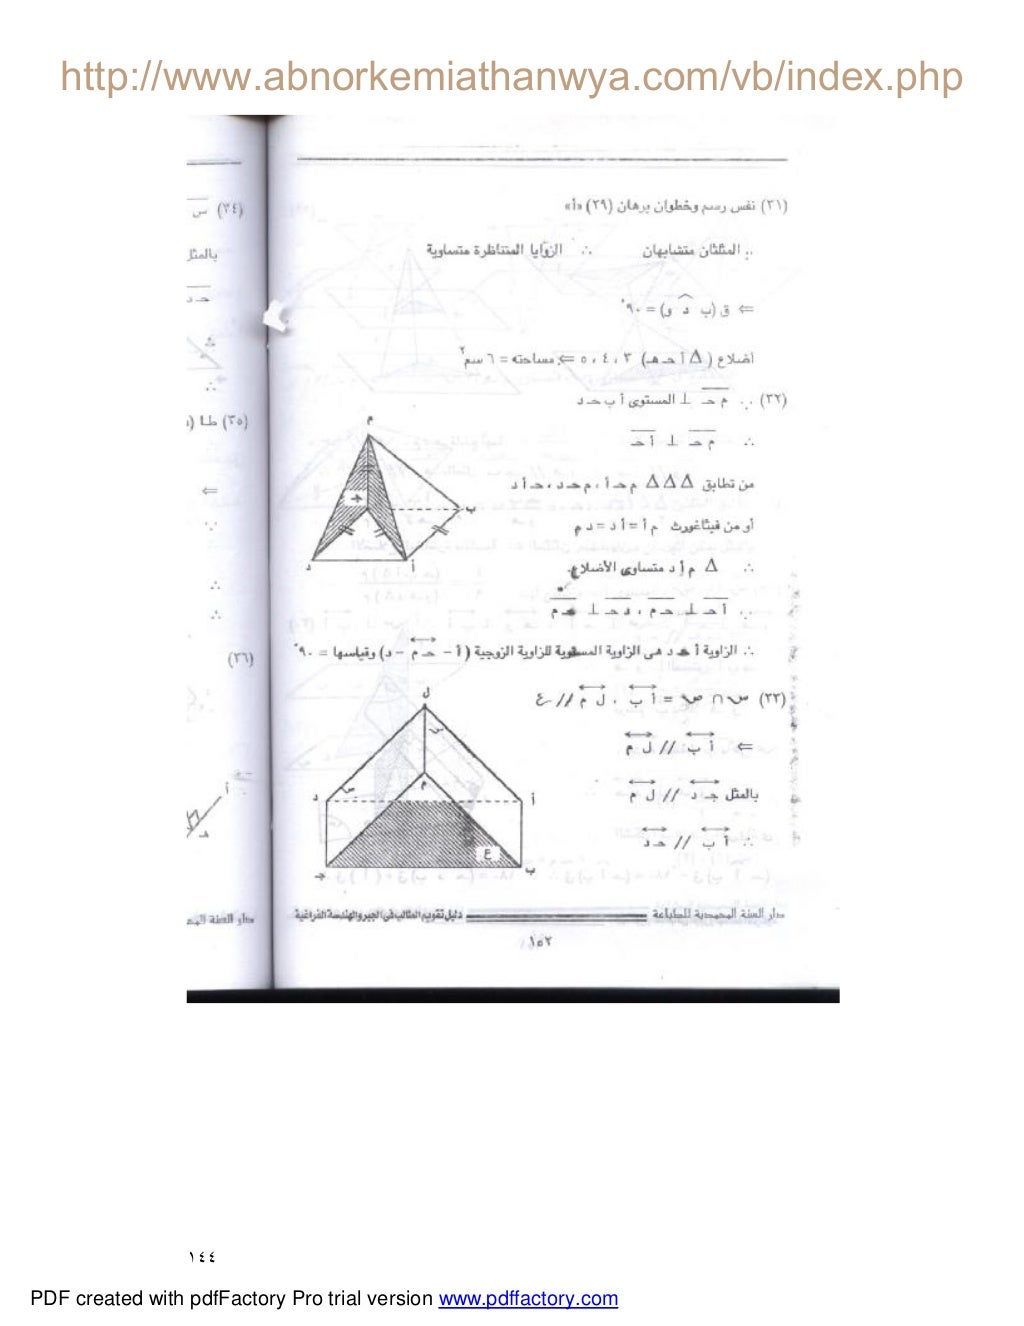 http://www.abnorkemiathanwya.com/vb/index.php
(٣١) نفس رسم وخطوات برهان (٢٩) «أ»
∵ المثلثان متشابهان ∴ الزوايا المتناظرة متساوية
⇐ ق (ب د و) = ٩٠°
أضلاع (Δ أ حـ هـ) ٣ ، ٤ ، ٥ ⇐ مساحته = ٦ سم٢
(٣٢) ∵ م حـ ⊥ المستوى أ ب حـ د
∴ م حـ ⊥ أ حـ
من تطابق Δ Δ Δ م حـ أ ، م حـ د ، حـ أ د
أو من فيثاغورث م أ = أ د = د م
∴ Δ م أ د متساوى الأضلاع
∵ أ حـ ⊥ حـ م ، د حـ ⊥ حـ م
∴ الزاوية أ حـ د هى الزاوية المستوية للزاوية الزوجية (أ - حـ م - د) وقياسها = ٩٠°
م
جـ
ب
د
أ
(٣٣) س ∩ ص = أ ب ، ل م // ع
⇐ أ ب // ل م
بالمثل جـ د // ل م
∴ أ ب // حـ د
ل
س
م
ص
د
أ
ع
جـ
ب
دار السنة المحمدية للطباعة
دليل تقويم الطالب فى الجبر والهندسة الفراغية
١٥٢
(٣٤) س
بالمثل
حـ د
∴
(٣٥) طا
⇐
∵
∴
∴
(٣٦)
أ
دار السنة المحمـ
١٤٤
PDF created with pdfFactory Pro trial version www.pdffactory.com